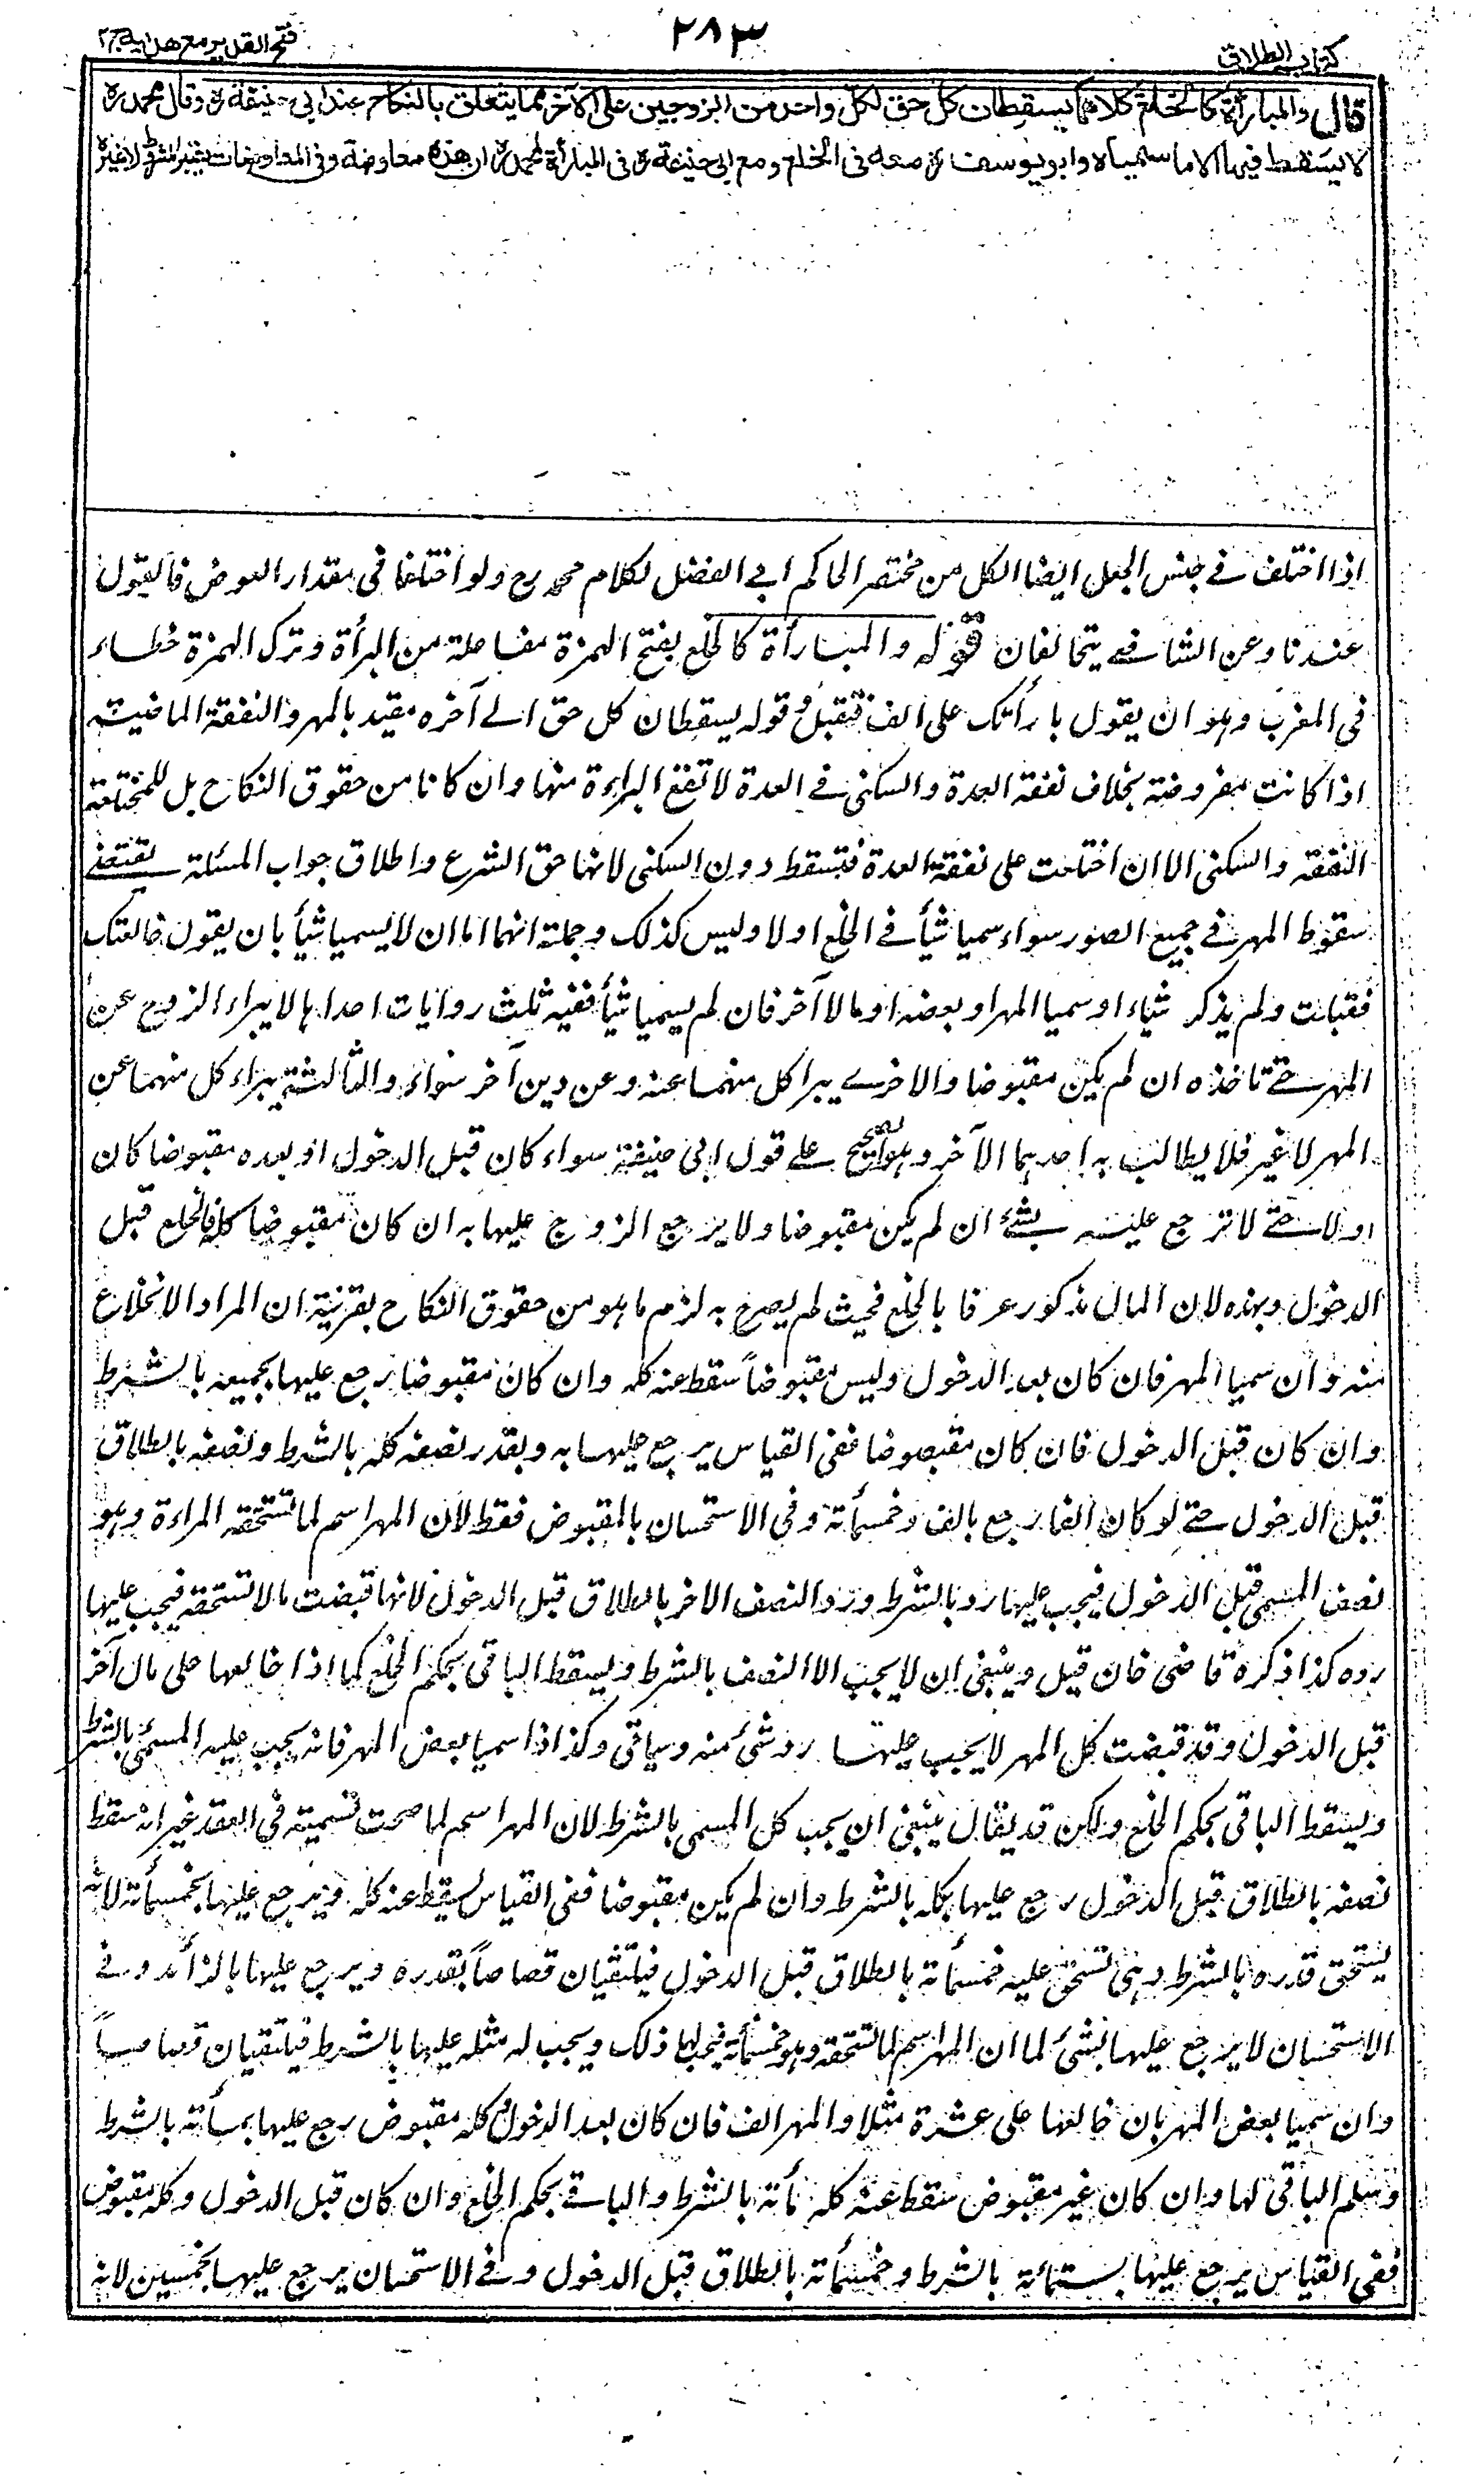 كتاب الطلاق
٢٨٣
فتح القدير مع هدايه ج٢
قال والمبارأة كالخلع كلاهما يسقطان كل حق لكل واحد من الزوجين على الآخر مما يتعلق بالنكاح عند ابي حنيفة رح وقال محمد رح
لا يسقط فيهما الا ما سمياه وابو يوسف رح معه فى الخلع ومع ابى حنيفة رح فى المبارأة لمحمد رح ان هذه معاوضة وفى المعاوضات يعتبر المشروط لا غيره
اذا اختلف فى جنس الجعل ايضا الكل من مختصر الحاكم ابى الفضل لكلام محمد رح ولو اختلفا فى مقدار العوض فالقول
عندنا وعن الشافعى يتحالفان قوله والمبارأة كالخلع بفتح الهمزة مفاعلة من البرأة وترك الهمزة خطاء
فى المغرب وهو ان يقول بارأتك على الف فتقبل و قوله يسقطان كل حق الى آخره مقيد بالمهر والنفقة الماضية
اذا كانت مفروضة بخلاف نفقة العدة والسكنى فى العدة لا تقع البراءة منها وان كانا من حقوق النكاح بل للمختلعة
النفقة والسكنى الا ان اختلعت على نفقة العدة فتسقط دون السكنى لانها حق الشرع واطلاق جواب المسئلة يقتضى
سقوط المهر فى جميع الصور سواء سميا شيأ فى الخلع اولا وليس كذلك وجملته انهما اما ان لا يسميا شيأ بان يقول خالعتك
فقبلت ولم يذكر شياء او سميا المهر او بعضه او مالا آخر فان لم يسميا شيأ ففيه ثلث روايات احداها لا يبراء الزوج عن
المهر حتى تاخذه ان لم يكن مقبوضا والاخرى يبرا كل منهما عنه وعن دين آخر سواه والثالثة يبراء كل منهما عن
المهر لا غير فلا يطالب به احدهما الآخر وهو الصحيح على قول ابى حنيفة سواء كان قبل الدخول او بعده مقبوضا كان
اولا حتى لا ترجع عليه بشئ ان لم يكن مقبوضا ولا يرجع الزوج عليها به ان كان مقبوضا كله والخلع قبل
الدخول وهذه لان المال مذكور عرفا بالخلع فحيث لم يصرح به لزم ما هو من حقوق النكاح بقرينة ان المراد الانخلاع
منه وان سميا المهر فان كان بعد الدخول وليس مقبوضاً سقط عنه كله وان كان مقبوضا رجع عليها بجميعه بالشرط
وان كان قبل الدخول فان كان مقبوضا ففى القياس يرجع عليها به وبقدر نصفه كله بالشرط ونصفه بالطلاق
قبل الدخول حتى لو كان الفا رجع بالف وخمسمأتة وفى الاستحسان بالمقبوض فقط لان المهر اسم لما تستحقه المراءة وهو
نصف المسمى قبل الدخول فيجب عليها رده بالشرط ورد النصف الاخر بالطلاق قبل الدخول لانها قبضت ما لا تستحقه فيجب عليها
رده كذا ذكره قاضى خان قيل وينبغى ان لا يجب الا النصف بالشرط ويسقط الباقى بحكم الخلع كما اذا خالعها على مال آخر
قبل الدخول وقد قبضت كل المهر لا يجب عليها رد شئ منه وسياتى وكذا اذا سميا بعض المهر فانه يجب عليه المسمى بالشرط
ويسقط الباقى بحكم الخلع ولكن قد يقال ينبغى ان يجب كل المسمى بالشرط لان المهر اسم لما صحت تسميته فى العقد غير انه سقط
نصفه بالطلاق قبل الدخول رجع عليها بكله بالشرط وان لم يكن مقبوضا ففى القياس يسقط عنه كله ويرجع عليها بخمسمأتة لانه
يستحق قدره بالشرط وهى تستحق عليه خمسمأتة بالطلاق قبل الدخول فيلتقيان قصاصاً بقدره ويرجع عليها بالزائد وفى
الاستحسان لا يرجع عليها بشئ لما ان المهر اسم لما تستحقه وهو خمسمأتة فيجب لها ذلك ويجب له مثله عليها بالشرط فيلتقيان قصاصاً
وان سميا بعض المهر بان خالعها على عشرة مثلا والمهر الف فان كان بعد الدخول و كله مقبوض رجع عليها بمأتة بالشرط
وسلم الباقى لها وان كان غير مقبوض سقط عنه كله مأتة بالشرط والباقى بحكم الخلع وان كان قبل الدخول وكله مقبوض
ففى القياس يرجع عليها بستمائة بالشرط وخمسمأتة بالطلاق قبل الدخول وفى الاستحسان يرجع عليها بخمسين لانه